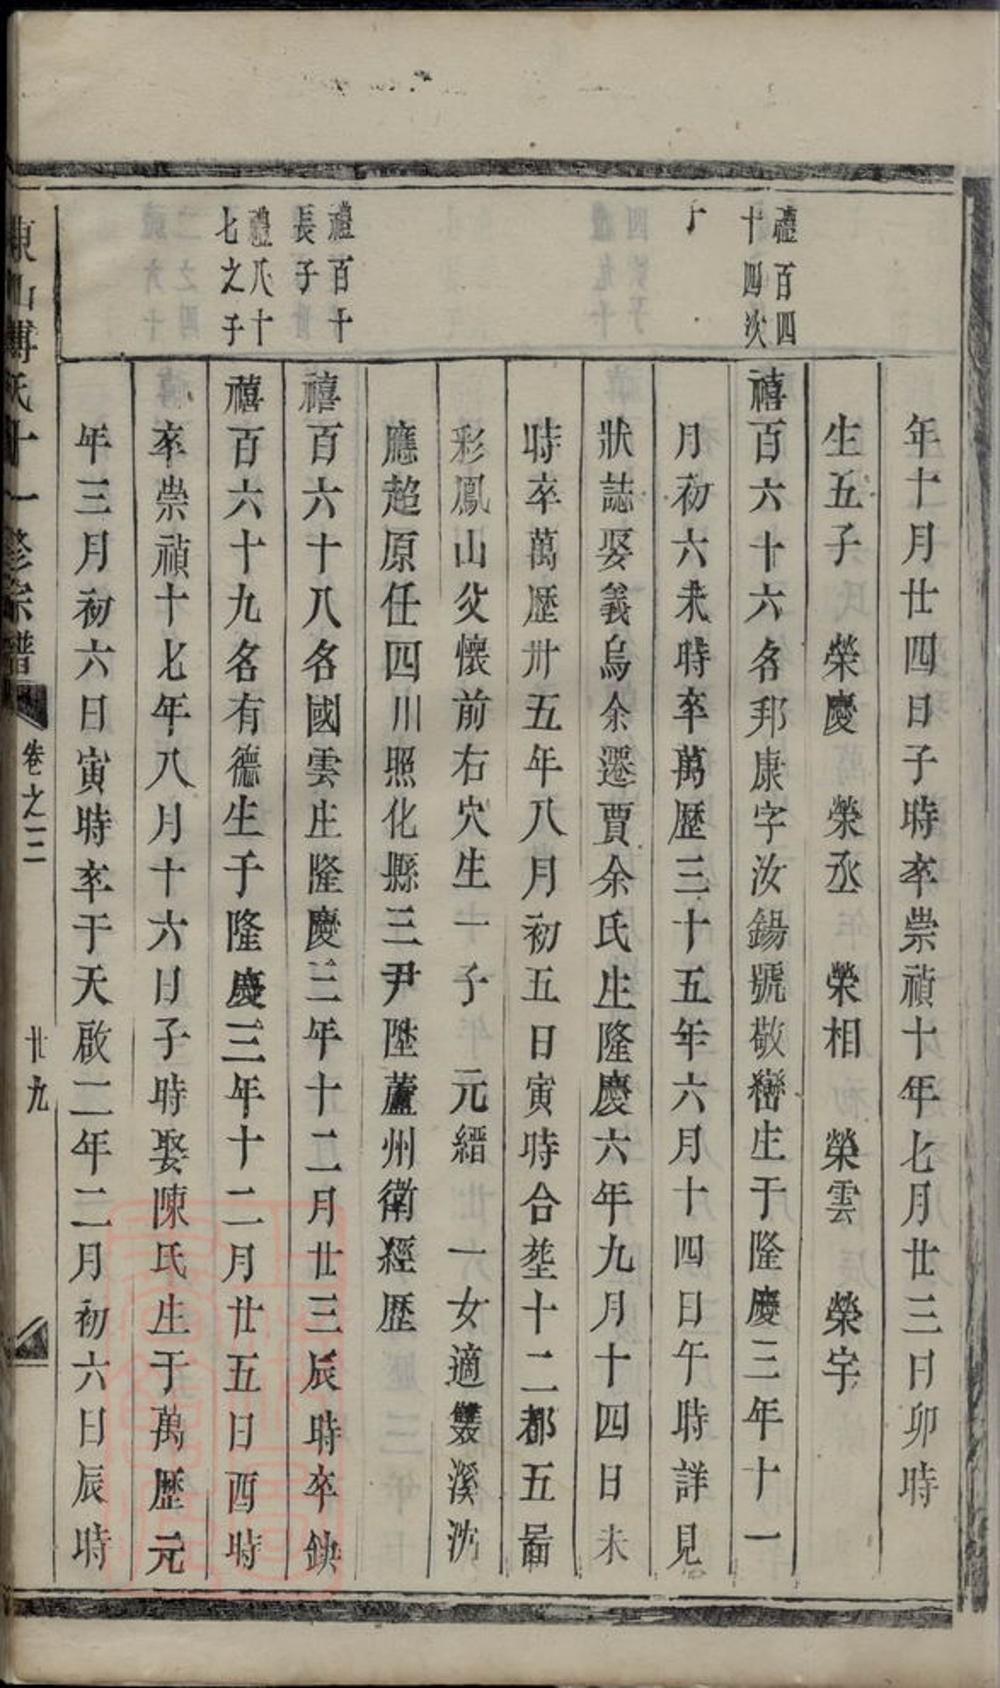 禮百四
十四次
子
禮百十
長子
禮八十
七之子
年十月廿四日子時卒崇禎十年七月廿三日卯時
生五子 榮慶 榮丞 榮相 榮雲 榮宇
禧百六十六名邦康字汝錫號敬巒生于隆慶三年十一
月初六未時卒萬歷三十五年六月十四日午時詳見
狀誌娶義烏余遷賈余氏生隆慶六年九月十四日未
時卒萬歷卅五年八月初五日寅時合塟十二都五啚
彩鳳山父懷前右穴生一子 元縉 一女適雙溪沈
應超原任四川照化縣三尹陞蘆州衛經歷
禧百六十八名國雲庄隆慶三年十二月廿三辰時卒缺
禧百六十九名有德生于隆慶三年十二月廿五日酉時
卒崇禎十七年八月十六日子時娶陳氏生于萬歷元
年三月初六日寅時卒于天啟二年二月初六日辰時
東山傅氏十一修宗譜
卷之三
廿九